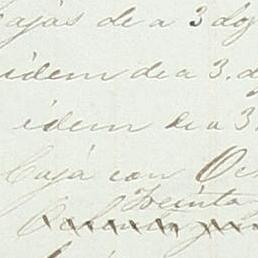 ajas de a 3 do
idem de a 3. d
idem de a 3
Caja con Oc
Treinta